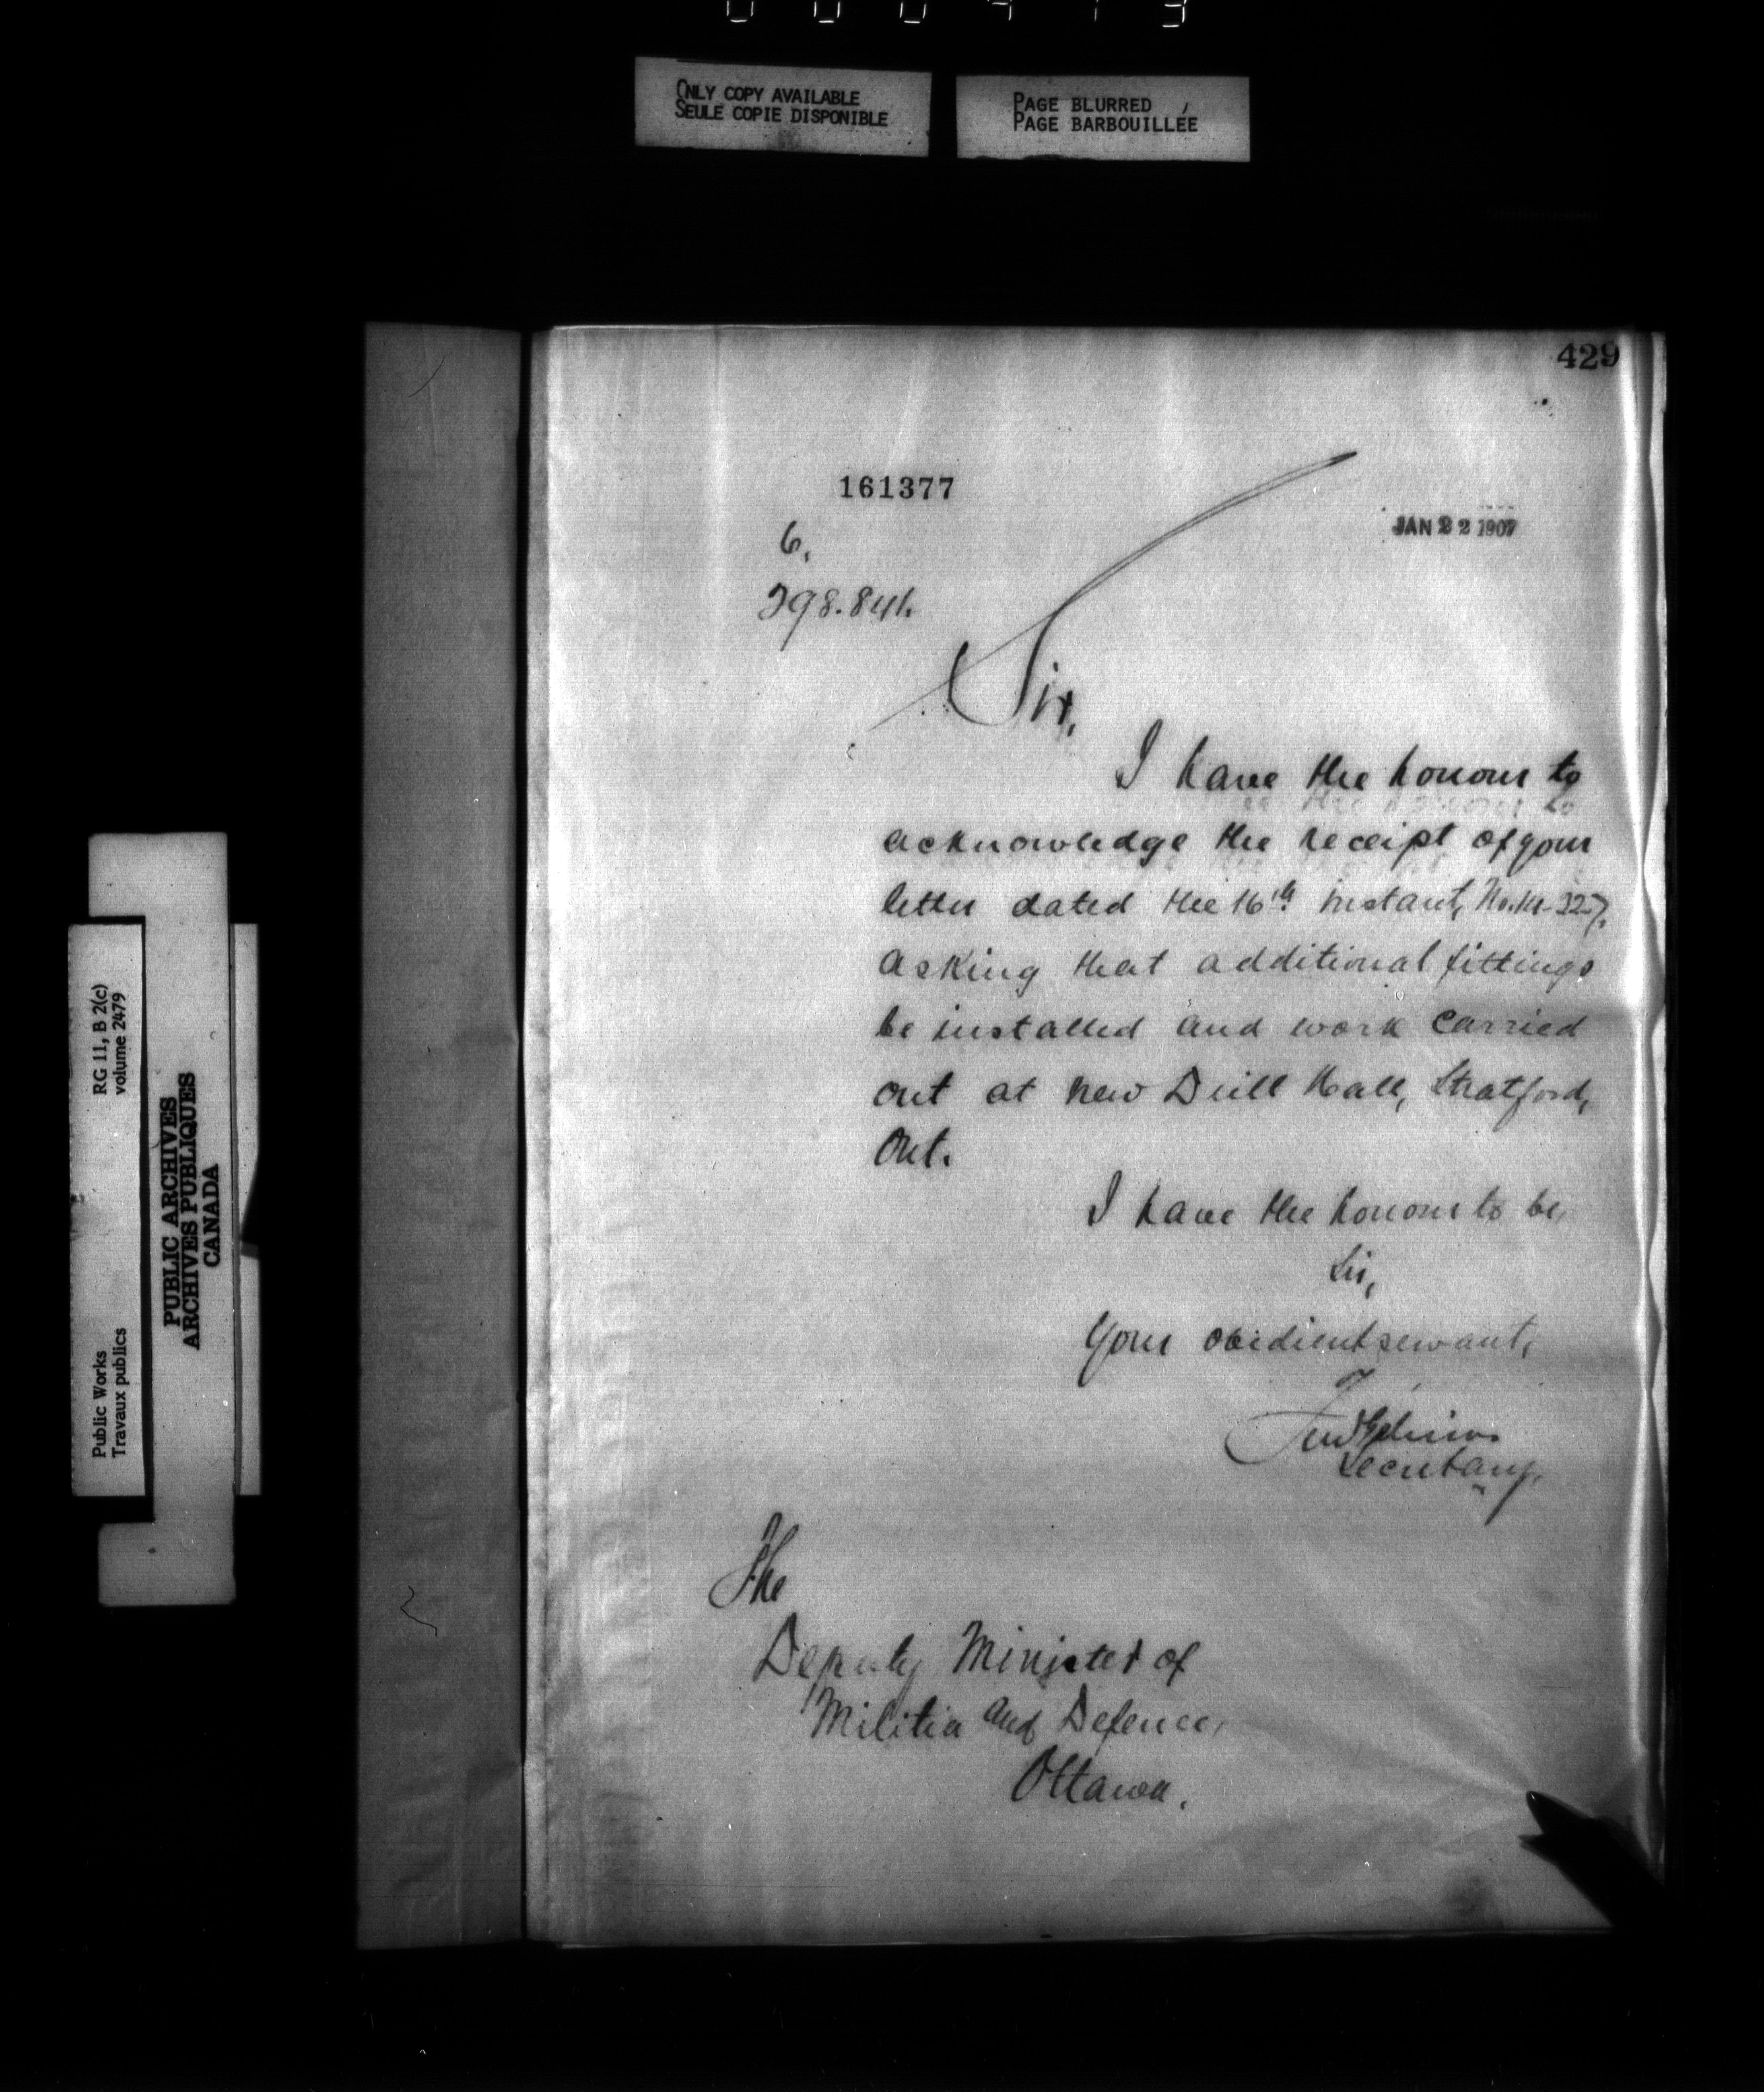 ONLY COPY AVAILABLE
SEULE COPIE DISPONIBLE
PAGE BLURRED
PAGE BARBOUILLÉE
429
161377
JAN 22 1907
6.
298.841.
Sir,
I have the honour to
acknowledge the receipt of your
letter dated the 16th instant, No.
asking that additional fittings
be installed and work carried
out at new Drill Hall, Stratford,
Ont.
I have the honour to be,
Sir,
Your obedient servant,
Fred Gélinas
Secretary.
The
Deputy Minister of
Militia and Defence,
Ottawa.
RG 11, B 2(c)
volume 2479
Public Works
Travaux publics
PUBLIC ARCHIVES
ARCHIVES PUBLIQUES
CANADA